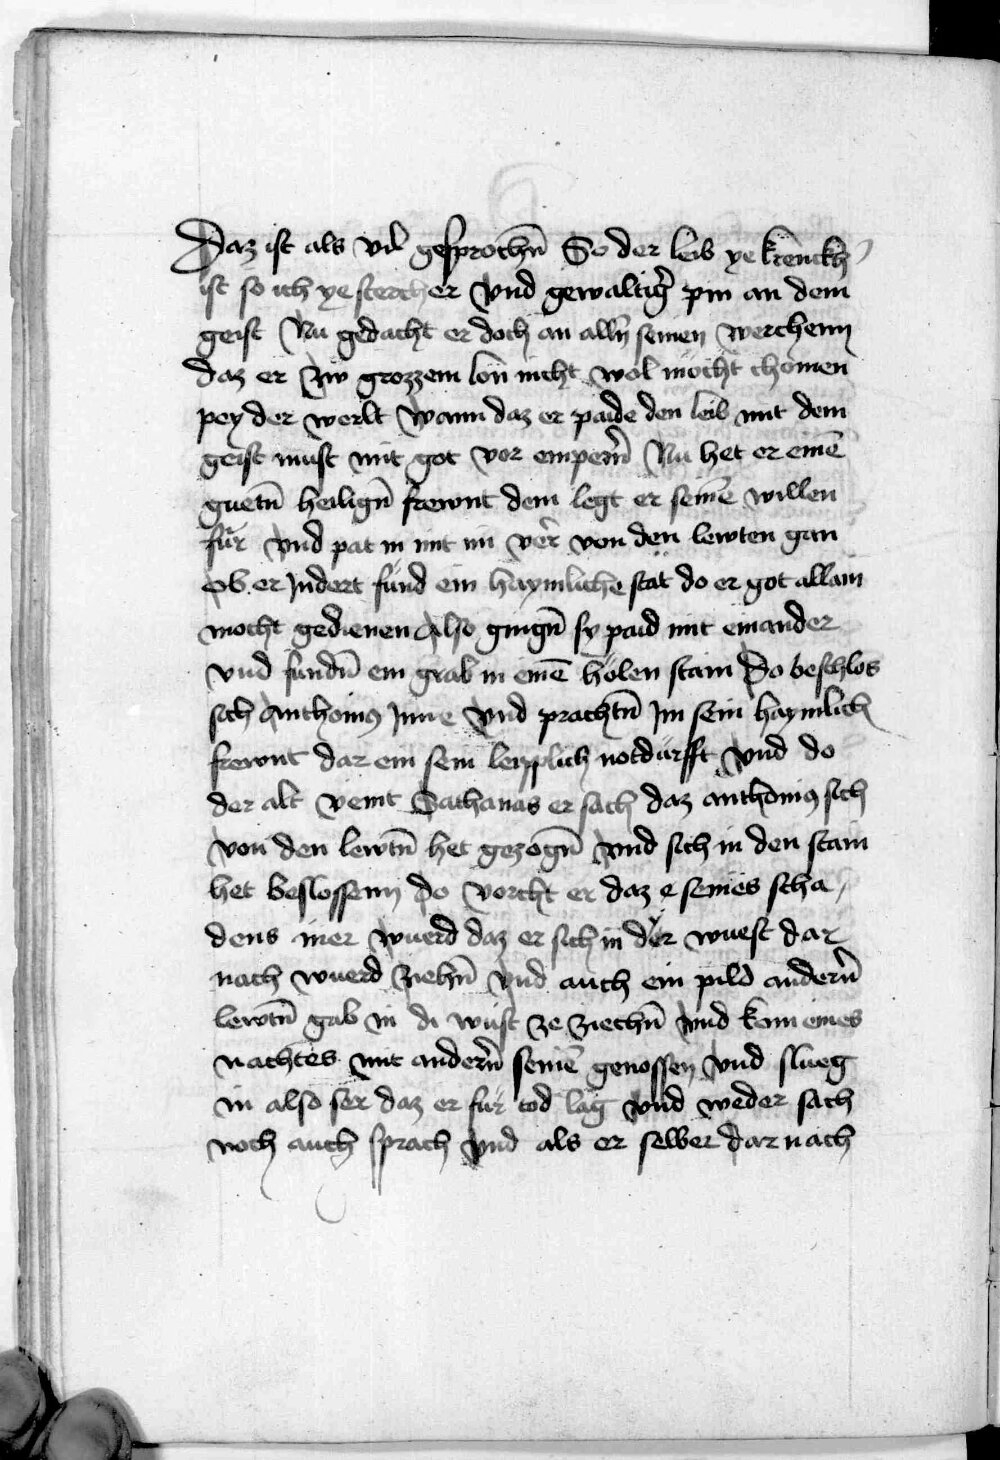 Daz ist als vil gesprochn̄ So der leib ye krenckh
ist so ich ye stercher vnd gewaltig̉ pin an dem
geist Nu gedacht er doch an alln̄ seinen werchenn
daz er zw grozzem lon nicht wol möcht chömen
pey der werlt Wann daz er paide den leib mit dem
geist must mit got vor empern̄ Nu het er eine͂
guetn̄ heilign̄ frewnt dem legt er seine͂ willen
für vnd pat in mit im ver̉ von den lewten gan
Ob er Jndert fünd ein haymliche stat do er got allain
mocht gedienen Also gingn̄ sy paid mit einander
vnd fundn̄ ein grab in eine͂ holen stain Do beschlos
sich Anthonius Jnne vnd prachtn̄ Jm sein haymlich
frewnt dar ein sein leipplich notdurfft Vnd do
der alt veint Sathanas ersach daz anthonius sich
von den lewtn̄ het gezogn̄ vnd sich in den stain
het beslossenn do vorcht er daz e seines scha
dens mer wuerd daz er sich in der wuest dar
nach wuerd ziehn̄ vnd auch ein pild andern̄
lewtn̄ gab in di wüst ze ziechn̄ vnd kom eines
nachtes mit andern̄ seine͂ genossen vnd slueg
in also ser daz er für tod lag vnd weder sach
noch auch sprach vnd als er selber dar nach